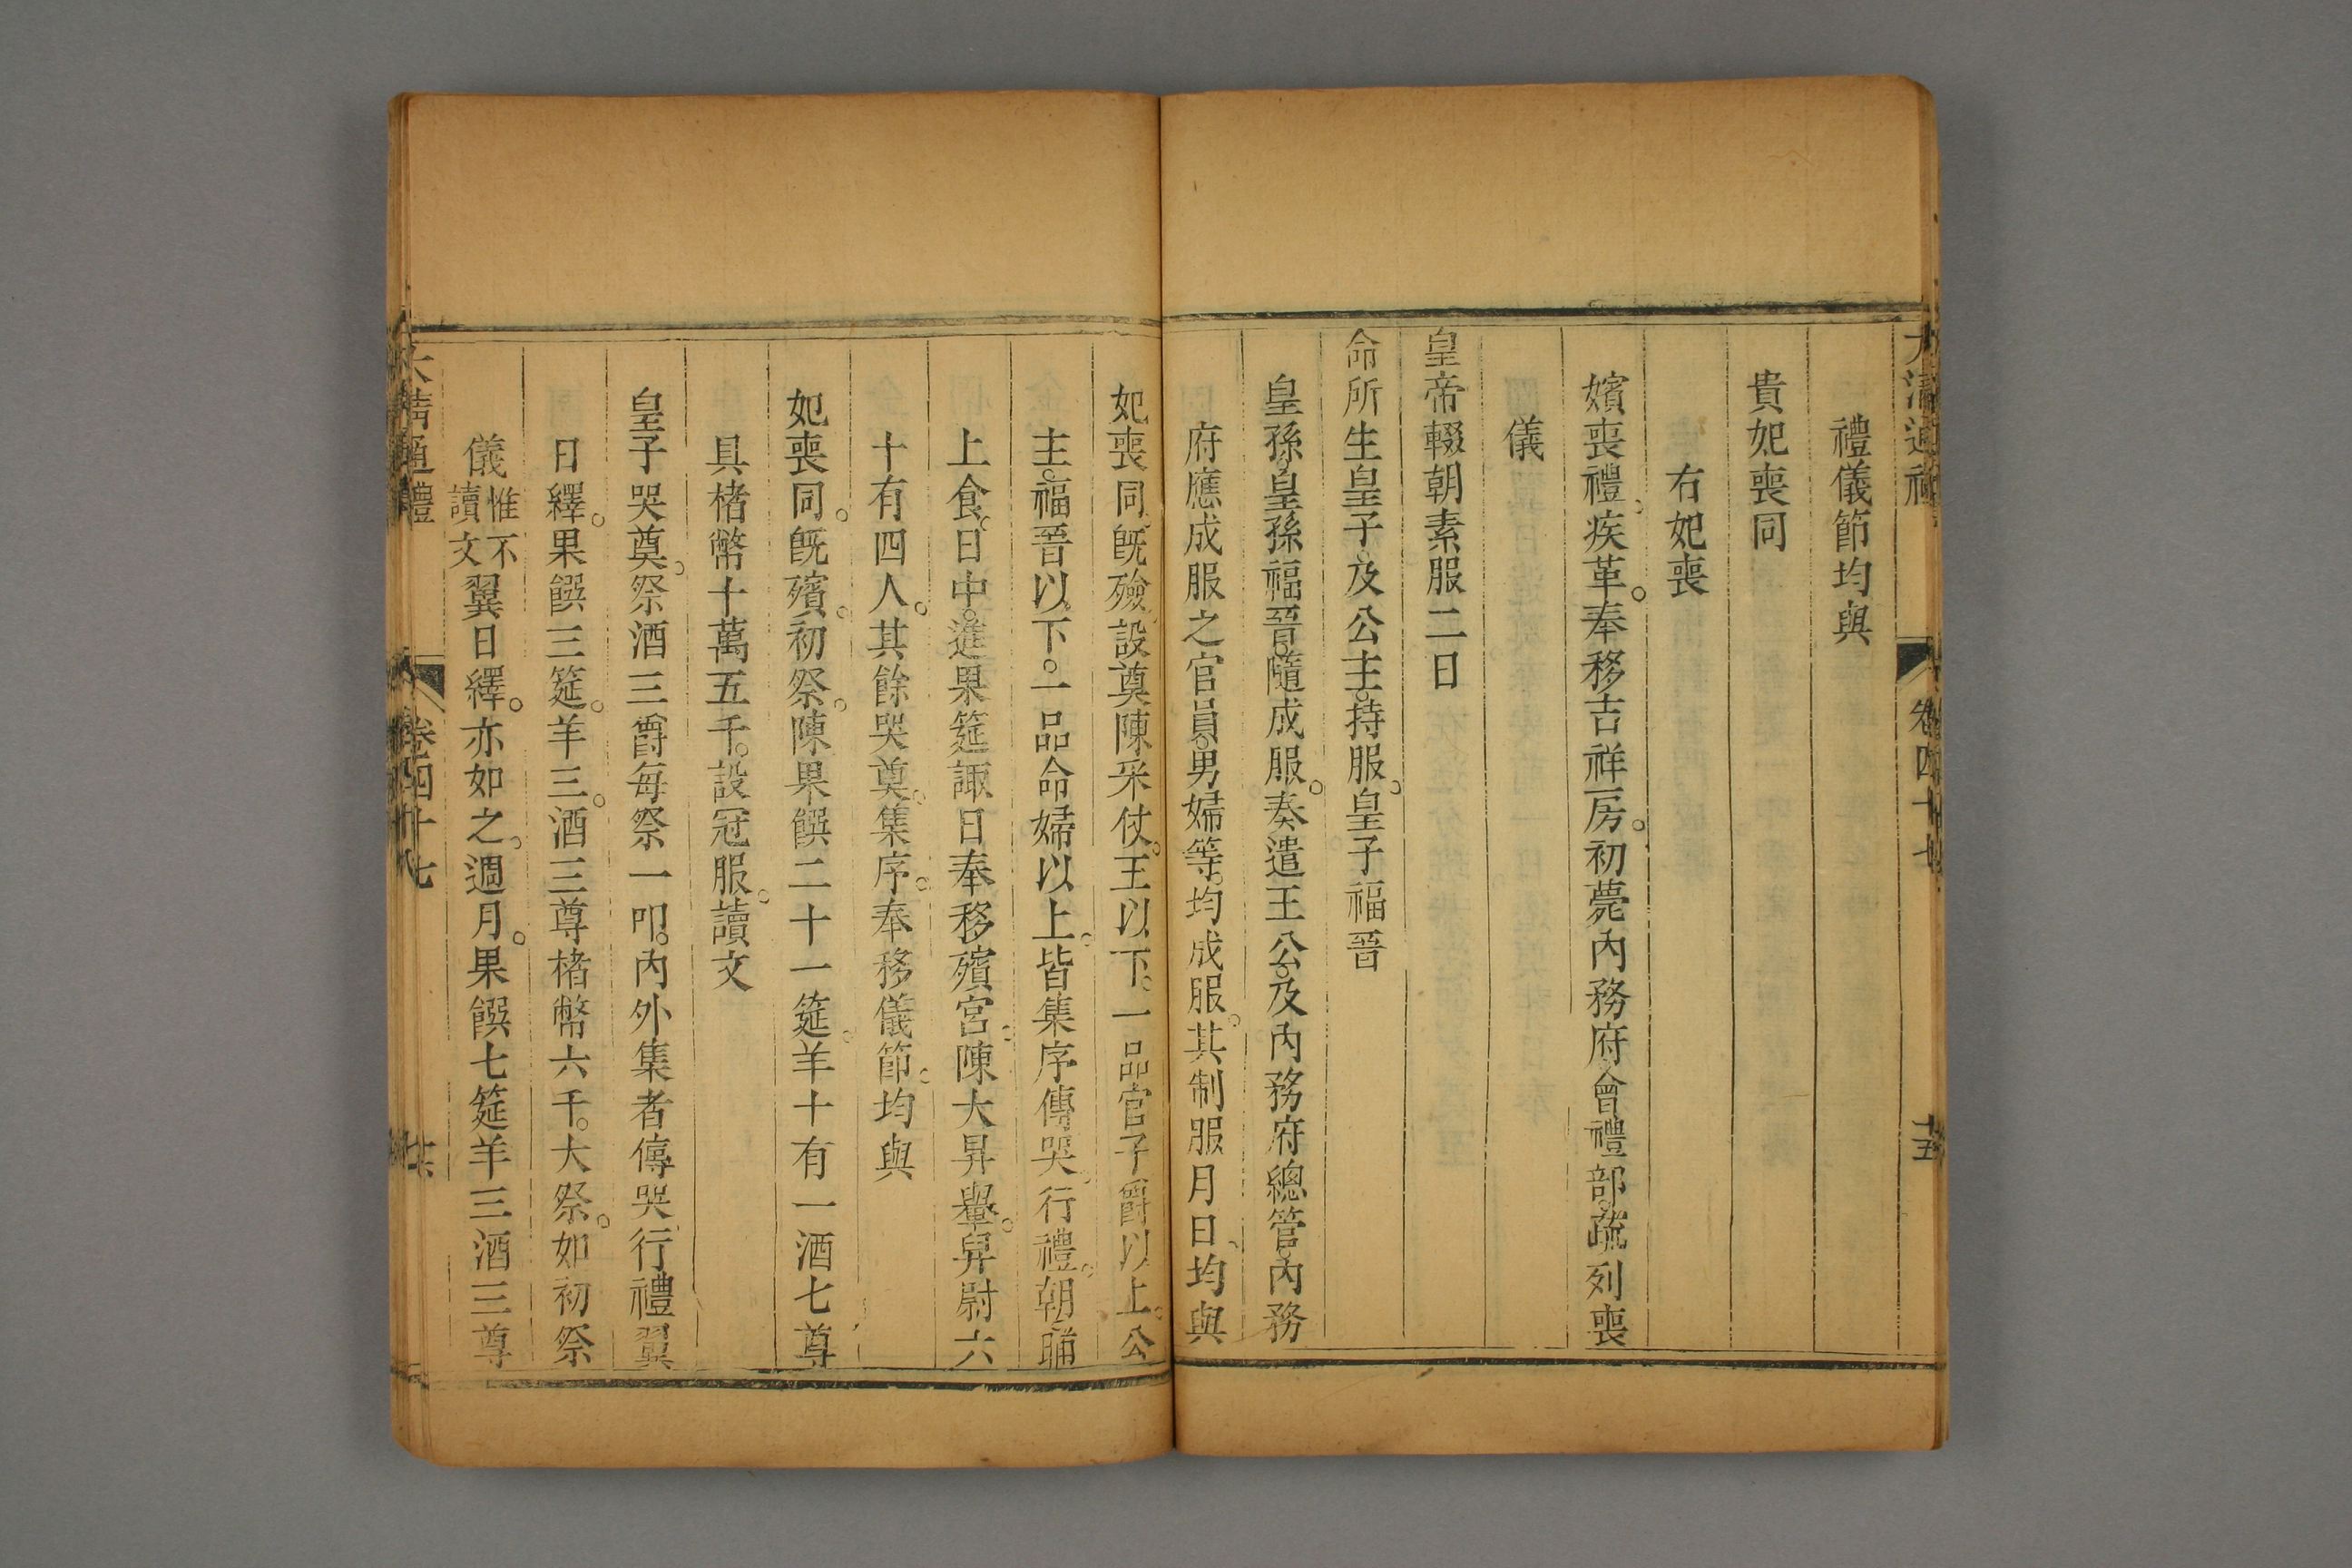 大清通禮 卷四十七 十五
禮儀節均與
貴妃喪同
右妃喪
嬪喪禮疾革。奉移吉祥房。初薨內務府會禮部。疏列喪
儀
皇帝輟朝素服二日
命所生皇子。及公主。持服。皇子福晉
皇孫。皇孫福晉。隨成服。奏遣王公。及內務府總管。內務
府應成服之官員。男婦等。均成服。其制服月日。均與
妃喪同。旣殮。設奠陳采仗。王以下。一品官子爵以上。公
主。福晉以下。一品命婦以上。皆集序傳哭。行禮。朝晡
上食。日中。進果筵諏日奉移殯宮。陳大昇轝。舁尉六
十有四人。其餘哭奠。集序。奉移儀節。均與
妃喪同。旣殯。初祭。陳果饌二十一筵。羊十有一酒七尊
具楮幣十萬五千。設冠服。讀文
皇子哭奠。祭酒三爵每祭一叩。內外集者傳哭行禮翼
日繹。果饌三筵。羊三。酒三尊楮幣六千。大祭。如初祭
儀惟不讀文翼日繹。亦如之。週月。果饌七筵羊三酒三尊
大清通禮 卷四十七 十六